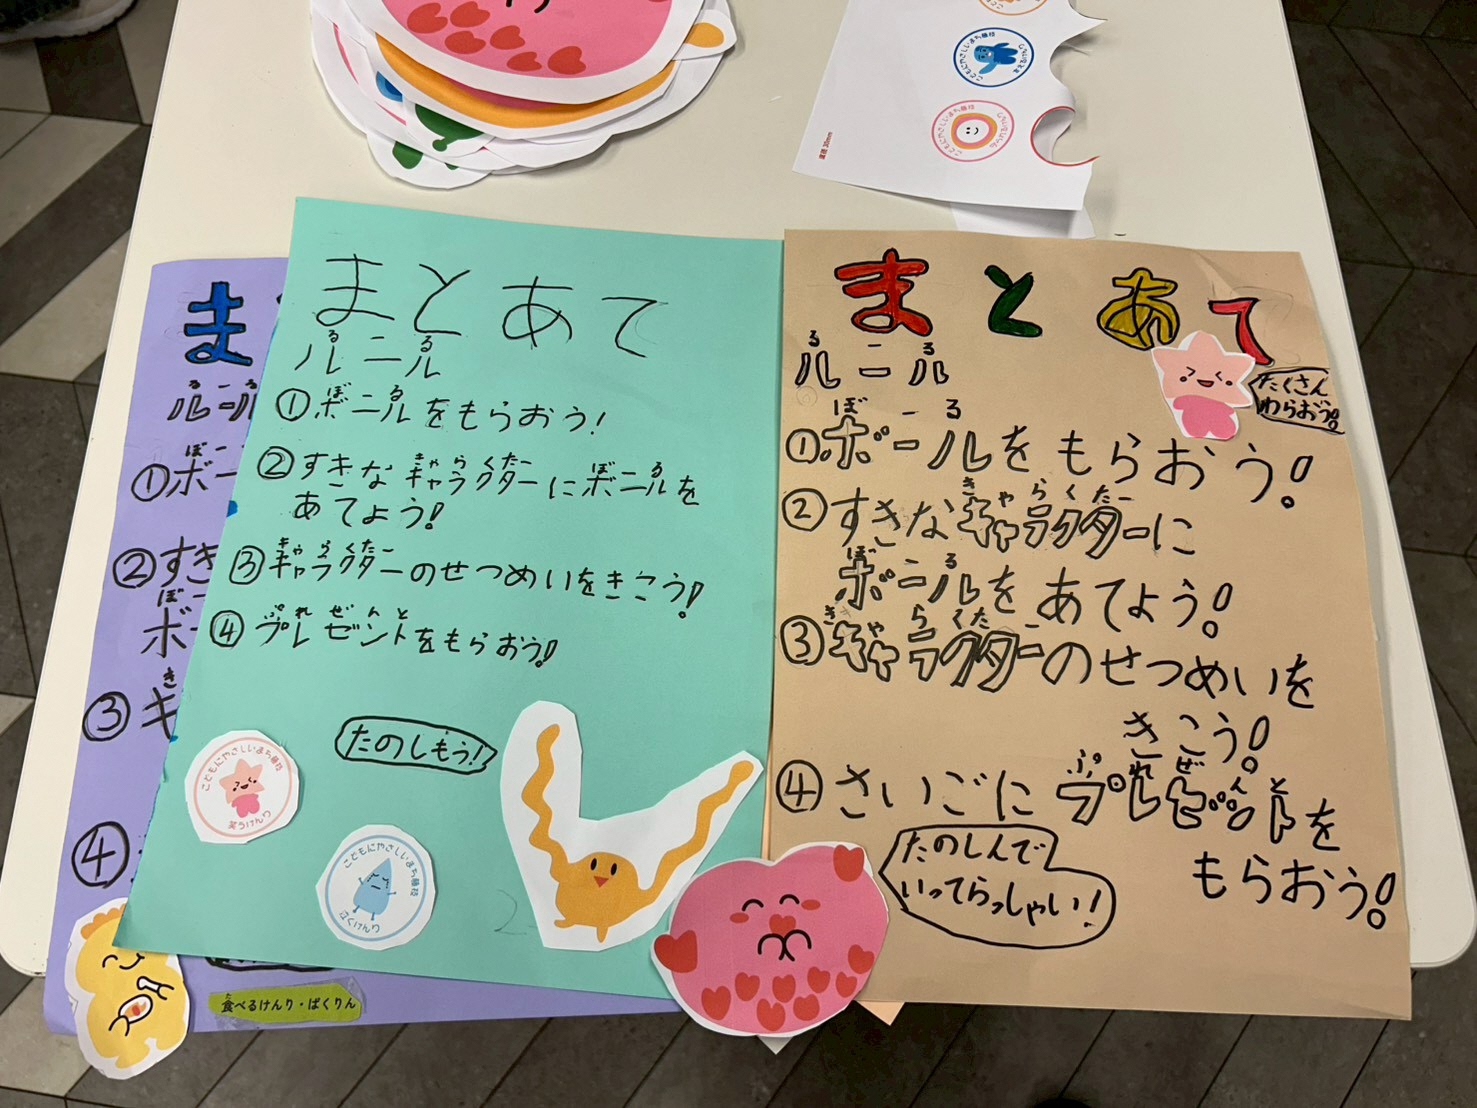 まとあて
ルール
るーる
①ボールをもらおう!
ぼーる
②すきなキャラクターにボールを
きゃらくたー
ぼーる
あてよう!
③キャラクターのせつめいをきこう!
きゃらくたー
④プレゼントをもらおう!
ぷれぜんと
たのしもう!
こどもにやさしいまち
笑うけんり
こどもにやさしいまち
なくけんり
まとあて
ルール
るーる
①ボールをもらおう!
ぼーる
②すきなキャラクターに
きゃらくたー
ボールをあてよう!
ぼーる
③キャラクターのせつめいを
きゃらくたー
きこう!
④さいごにプレゼントを
ぷれぜんと
もらおう!
たくさん
わらおう!
たのしんで
いってらっしゃい!
ま
ルール
るーる
①ボー
ぼー
②すき
ボー
ぼー
③キ
き
④
食べるけんり・ぱくりん
た
こどもにやさしいまち
こどもにやさしいまち
直径 30mm